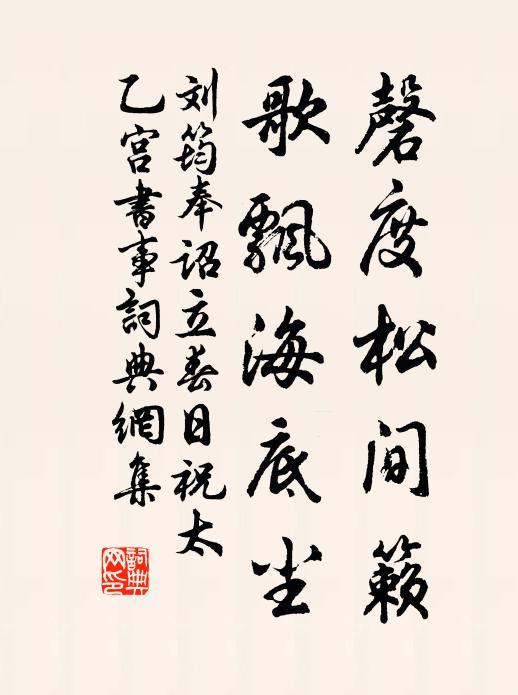 磬度松间籁
歌飘海底尘
刘筠奉诏立春日祝太
乙宫书事词典網集
詞典網印